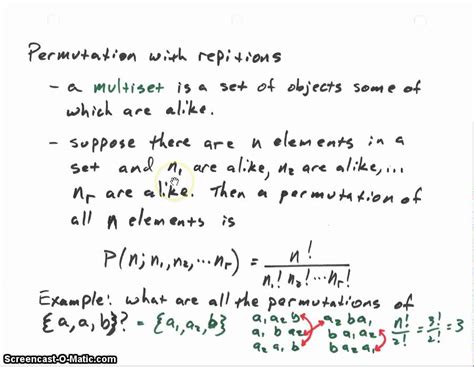 Permutation with repitions
- a multiset is a set of objects some of
which are alike.
- suppose there are n elements in a
set and n₁ are alike, n₂ are alike,...
nᵣ are alike. Then a permutation of
all n elements is
P(n; n₁, n₂, ... nᵣ) = n! / n₁! n₂! ... nᵣ!
Example: what are all the permutations of
{a, a, b}? = {a₁, a₂, b}
a₁ a₂ b a₂ b a₁
a₁ b a₂ b a₁ a₂
a₂ a₁ b b a₂ a₁
n!/2! = 3!/2! = 3
Screencast-O-Matic.com